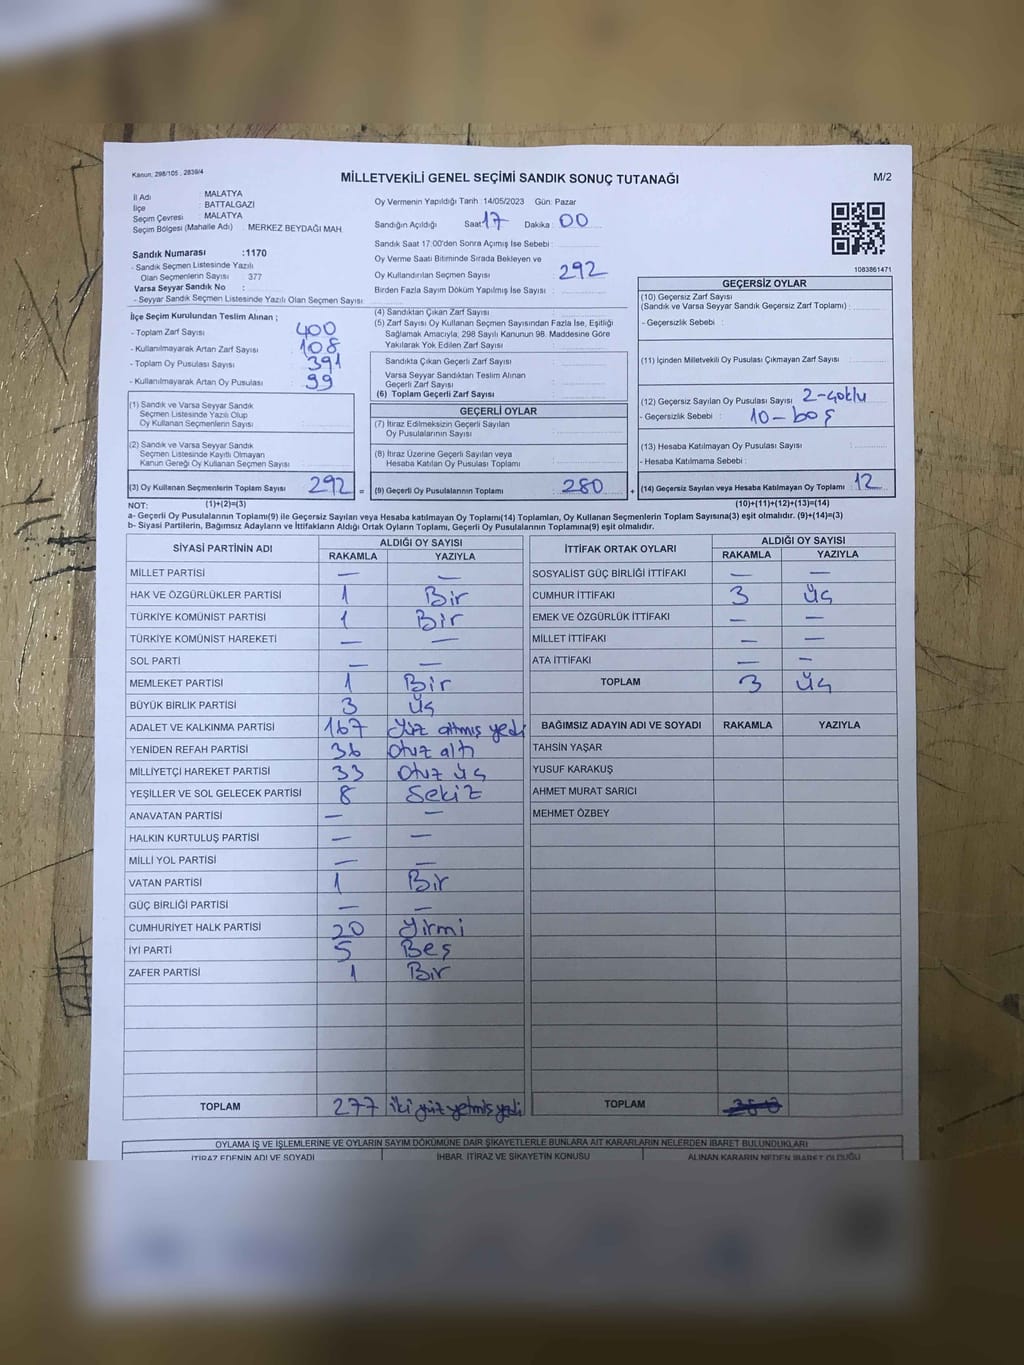 Kanun, 298/105 , 2839/4
MİLLETVEKİLİ GENEL SEÇİMİ SANDIK SONUÇ TUTANAĞI
M/2
İl Adı : MALATYA
İlçe : BATTALGAZİ
Seçim Çevresi : MALATYA
Seçim Bölgesi (Mahalle Adı) : MERKEZ BEYDAĞI MAH.
Oy Vermenin Yapıldığı Tarih :14/05/2023 Gün: Pazar
Sandığın Açıldığı Saat 17 Dakika : 00
Sandık Saat 17.00'den Sonra Açılmış İse Sebebi :
Oy Verme Saati Bitiminde Sırada Bekleyen ve
Oy Kullandırılan Seçmen Sayısı 292
Birden Fazla Sayım Döküm Yapılmış İse Sayısı :
1083861471
Sandık Numarası :1170
- Sandık Seçmen Listesinde Yazılı
Olan Seçmenlerin Sayısı : 377
Varsa Seyyar Sandık No :
- Seyyar Sandık Seçmen Listesinde Yazılı Olan Seçmen Sayısı:
İlçe Seçim Kurulundan Teslim Alınan ;
- Toplam Zarf Sayısı 400
- Kullanılmayarak Artan Zarf Sayısı 108
- Toplam Oy Pusulası Sayısı 391
- Kullanılmayarak Artan Oy Pusulası 99
(1) Sandık ve Varsa Seyyar Sandık
Seçmen Listesinde Yazılı Olup
Oy Kullanan Seçmenlerin Sayısı :
(2) Sandık ve Varsa Seyyar Sandık
Seçmen Listesinde Kayıtlı Olmayan
Kanun Gereği Oy Kullanan Seçmen Sayısı :
(3) Oy Kullanan Seçmenlerin Toplam Sayısı 292 =
(4) Sandıktan Çıkan Zarf Sayısı :
(5) Zarf Sayısı Oy Kullanan Seçmen Sayısından Fazla İse, Eşitliği
Sağlamak Amacıyla; 298 Sayılı Kanunun 98. Maddesine Göre
Yakılarak Yok Edilen Zarf Sayısı :
Sandıkta Çıkan Geçerli Zarf Sayısı :
Varsa Seyyar Sandıktan Teslim Alınan
Geçerli Zarf Sayısı :
(6) Toplam Geçerli Zarf Sayısı :
GEÇERLİ OYLAR
(7) İtiraz Edilmeksizin Geçerli Sayılan
Oy Pusulalarının Sayısı :
(8) İtiraz Üzerine Geçerli Sayılan veya
Hesaba Katılan Oy Pusulası Toplamı :
(9) Geçerli Oy Pusulalarının Toplamı : 280 +
GEÇERSİZ OYLAR
(10) Geçersiz Zarf Sayısı
(Sandık ve Varsa Seyyar Sandık Geçersiz Zarf Toplamı) :
- Geçersizlik Sebebi :
(11) İçinden Milletvekili Oy Pusulası Çıkmayan Zarf Sayısı :
(12) Geçersiz Sayılan Oy Pusulası Sayısı 2-çoklu
- Geçersizlik Sebebi : 10-boş
(13) Hesaba Katılmayan Oy Pusulası Sayısı :
- Hesaba Katılmama Sebebi :
(14) Geçersiz Sayılan veya Hesaba Katılmayan Oy Toplamı : 12
NOT: (1)+(2)=(3) (10)+(11)+(12)+(13)=(14)
a- Geçerli Oy Pusulalarının Toplamı(9) ile Geçersiz Sayılan veya Hesaba katılmayan Oy Toplamı(14) Toplamları, Oy Kullanan Seçmenlerin Toplam Sayısına(3) eşit olmalıdır. (9)+(14)=(3)
b- Siyasi Partilerin, Bağımsız Adayların ve İttifakların Aldığı Ortak Oyların Toplamı, Geçerli Oy Pusulalarının Toplamına(9) eşit olmalıdır.
SİYASİ PARTİNİN ADI ALDIĞI OY SAYISI
RAKAMLA YAZIYLA
MİLLET PARTİSİ — —
HAK VE ÖZGÜRLÜKLER PARTİSİ 1 Bir
TÜRKİYE KOMÜNİST PARTİSİ 1 Bir
TÜRKİYE KOMÜNİST HAREKETİ — —
SOL PARTİ — —
MEMLEKET PARTİSİ 1 Bir
BÜYÜK BİRLİK PARTİSİ 3 Üç
ADALET VE KALKINMA PARTİSİ 167 Yüz altmış yedi
YENİDEN REFAH PARTİSİ 36 Otuz altı
MİLLİYETÇİ HAREKET PARTİSİ 33 Otuz üç
YEŞİLLER VE SOL GELECEK PARTİSİ 8 Sekiz
ANAVATAN PARTİSİ — —
HALKIN KURTULUŞ PARTİSİ — —
MİLLİ YOL PARTİSİ — —
VATAN PARTİSİ 1 Bir
GÜÇ BİRLİĞİ PARTİSİ — —
CUMHURİYET HALK PARTİSİ 20 Yirmi
İYİ PARTİ 5 Beş
ZAFER PARTİSİ 1 Bir
TOPLAM 277 iki yüz yetmiş yedi
İTTİFAK ORTAK OYLARI ALDIĞI OY SAYISI
RAKAMLA YAZIYLA
SOSYALİST GÜÇ BİRLİĞİ İTTİFAKI — —
CUMHUR İTTİFAKI 3 Üç
EMEK VE ÖZGÜRLÜK İTTİFAKI — —
MİLLET İTTİFAKI — —
ATA İTTİFAKI — —
TOPLAM 3 Üç
BAĞIMSIZ ADAYIN ADI VE SOYADI RAKAMLA YAZIYLA
TAHSİN YAŞAR
YUSUF KARAKUŞ
AHMET MURAT SARICI
MEHMET ÖZBEY
TOPLAM
OYLAMA İŞ VE İŞLEMLERİNE VE OYLARIN SAYIM DÖKÜMÜNE DAİR ŞİKAYETLERLE BUNLARA AİT KARARLARIN NELERDEN İBARET BULUNDUKLARI
İTİRAZ EDENİN ADI VE SOYADI İHBAR, İTİRAZ VE ŞİKAYETİN KONUSU ALINAN KARARIN NEDEN İBARET OLDUĞU